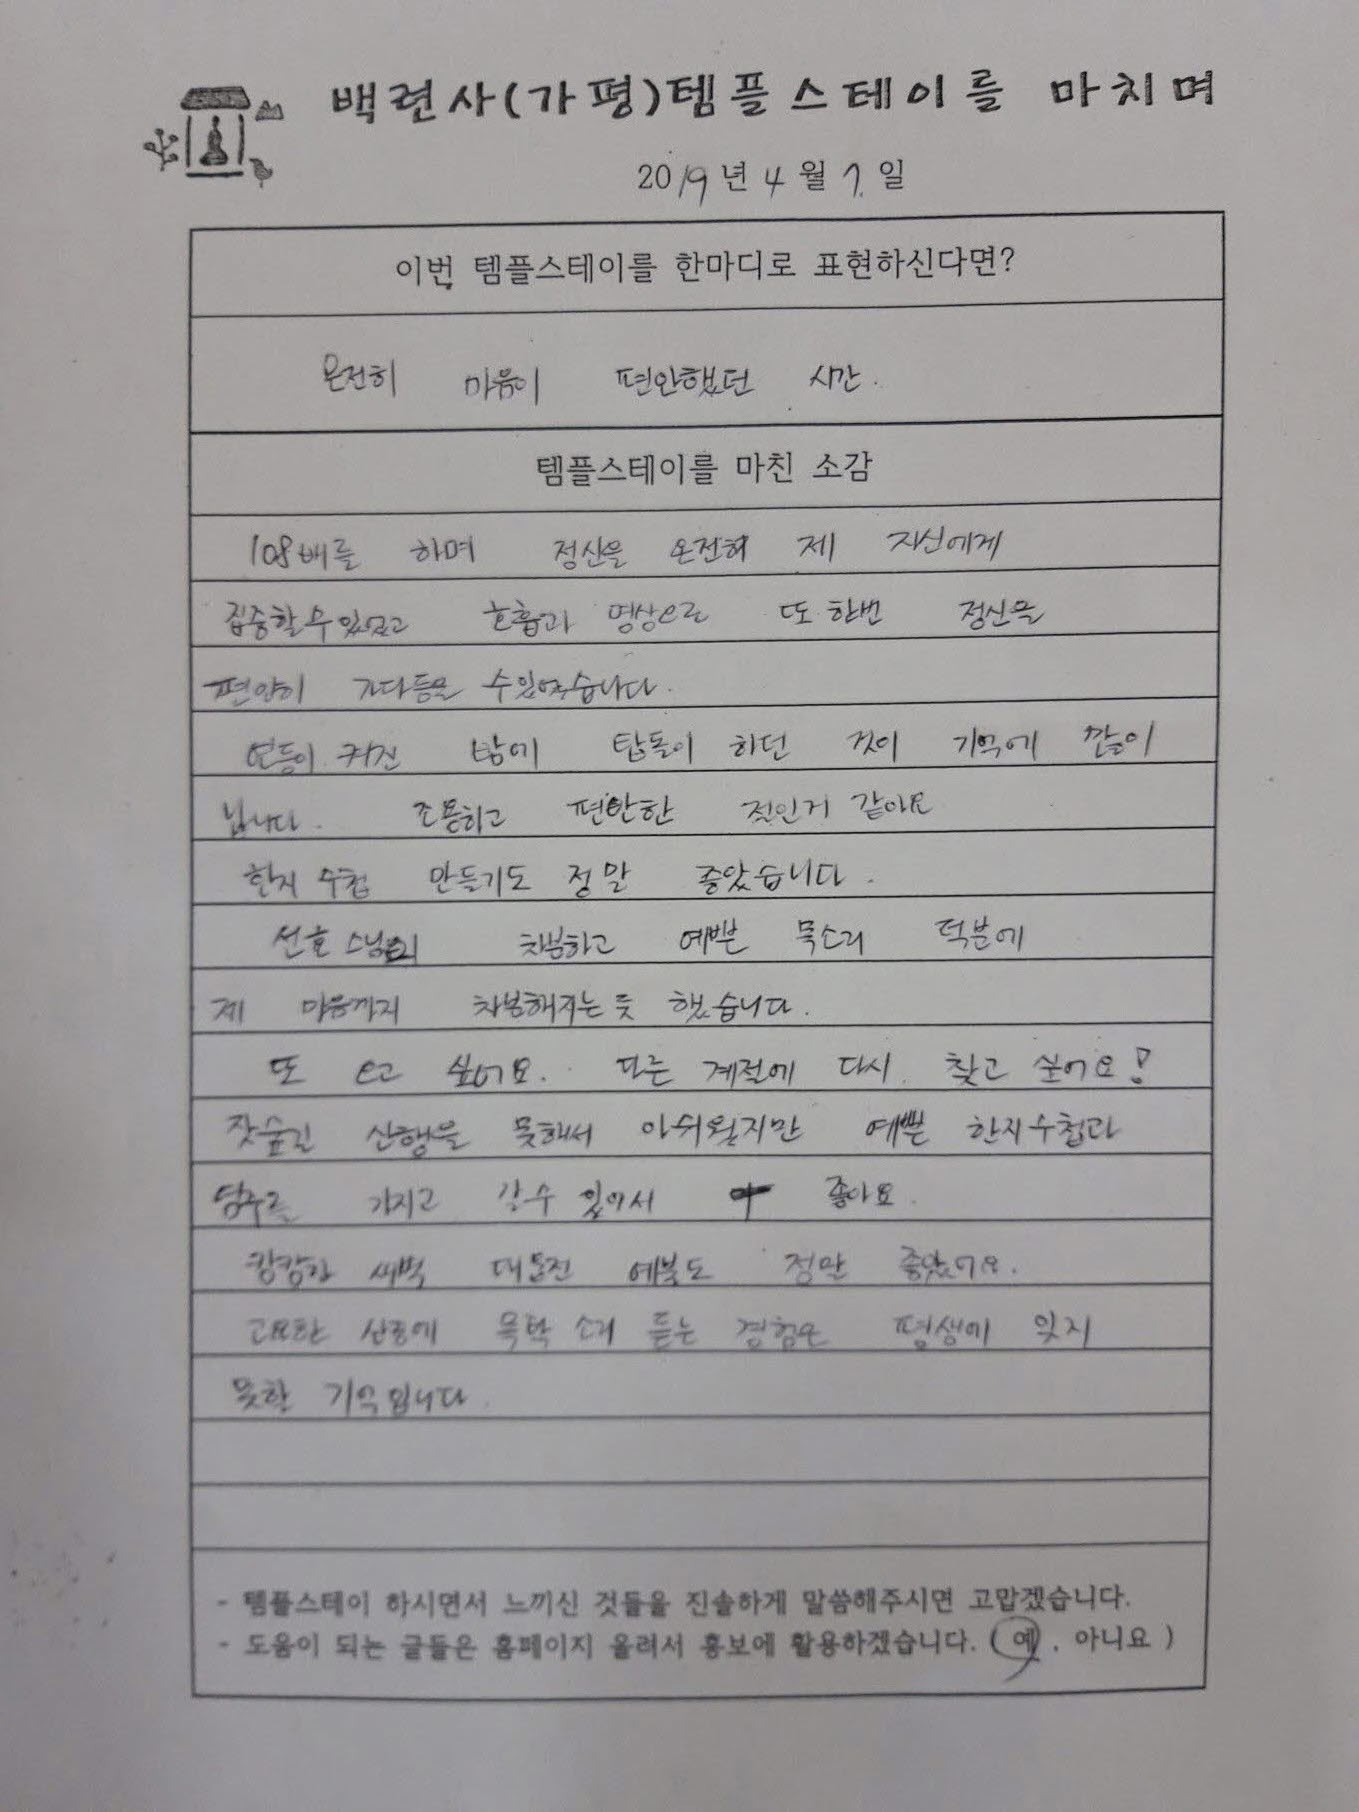 백련사(가평)템플스테이를 마치며
2019년 4월 7.일
이번 템플스테이를 한마디로 표현하신다면?
온전히 마음이 편안했던 시간.
템플스테이를 마친 소감
108배를 하며 정신을 온전히 제 자신에게
집중할 수 있었고 호흡과 명상으로 또 한번 정신을
편안히 가다듬을 수 있었습니다.
연등이 켜진 밤에 탑돌이 하던 것이 기억에 많이
납니다. 조용하고 편안한 절인거 같아요
한지 수첩 만들기도 정말 좋았습니다.
선호 스님의 차분하고 예쁜 목소리 덕분에
제 마음까지 차분해지는 듯 했습니다.
또 오고 싶어요. 다른 계절에 다시 찾고 싶어요!
잣숲길 산행을 못해서 아쉬웠지만 예쁜 한지수첩과
염주를 가지고 갈 수 있어서 좋아요.
캄캄한 새벽 대웅전 예불도 정말 좋았어요.
고요한 산중에 목탁 소리 듣는 경험은 평생에 잊지
못할 기억입니다.
- 템플스테이 하시면서 느끼신 것들을 진솔하게 말씀해주시면 고맙겠습니다.
- 도움이 되는 글들은 홈페이지 올려서 홍보에 활용하겠습니다. ( 예 . 아니요 )